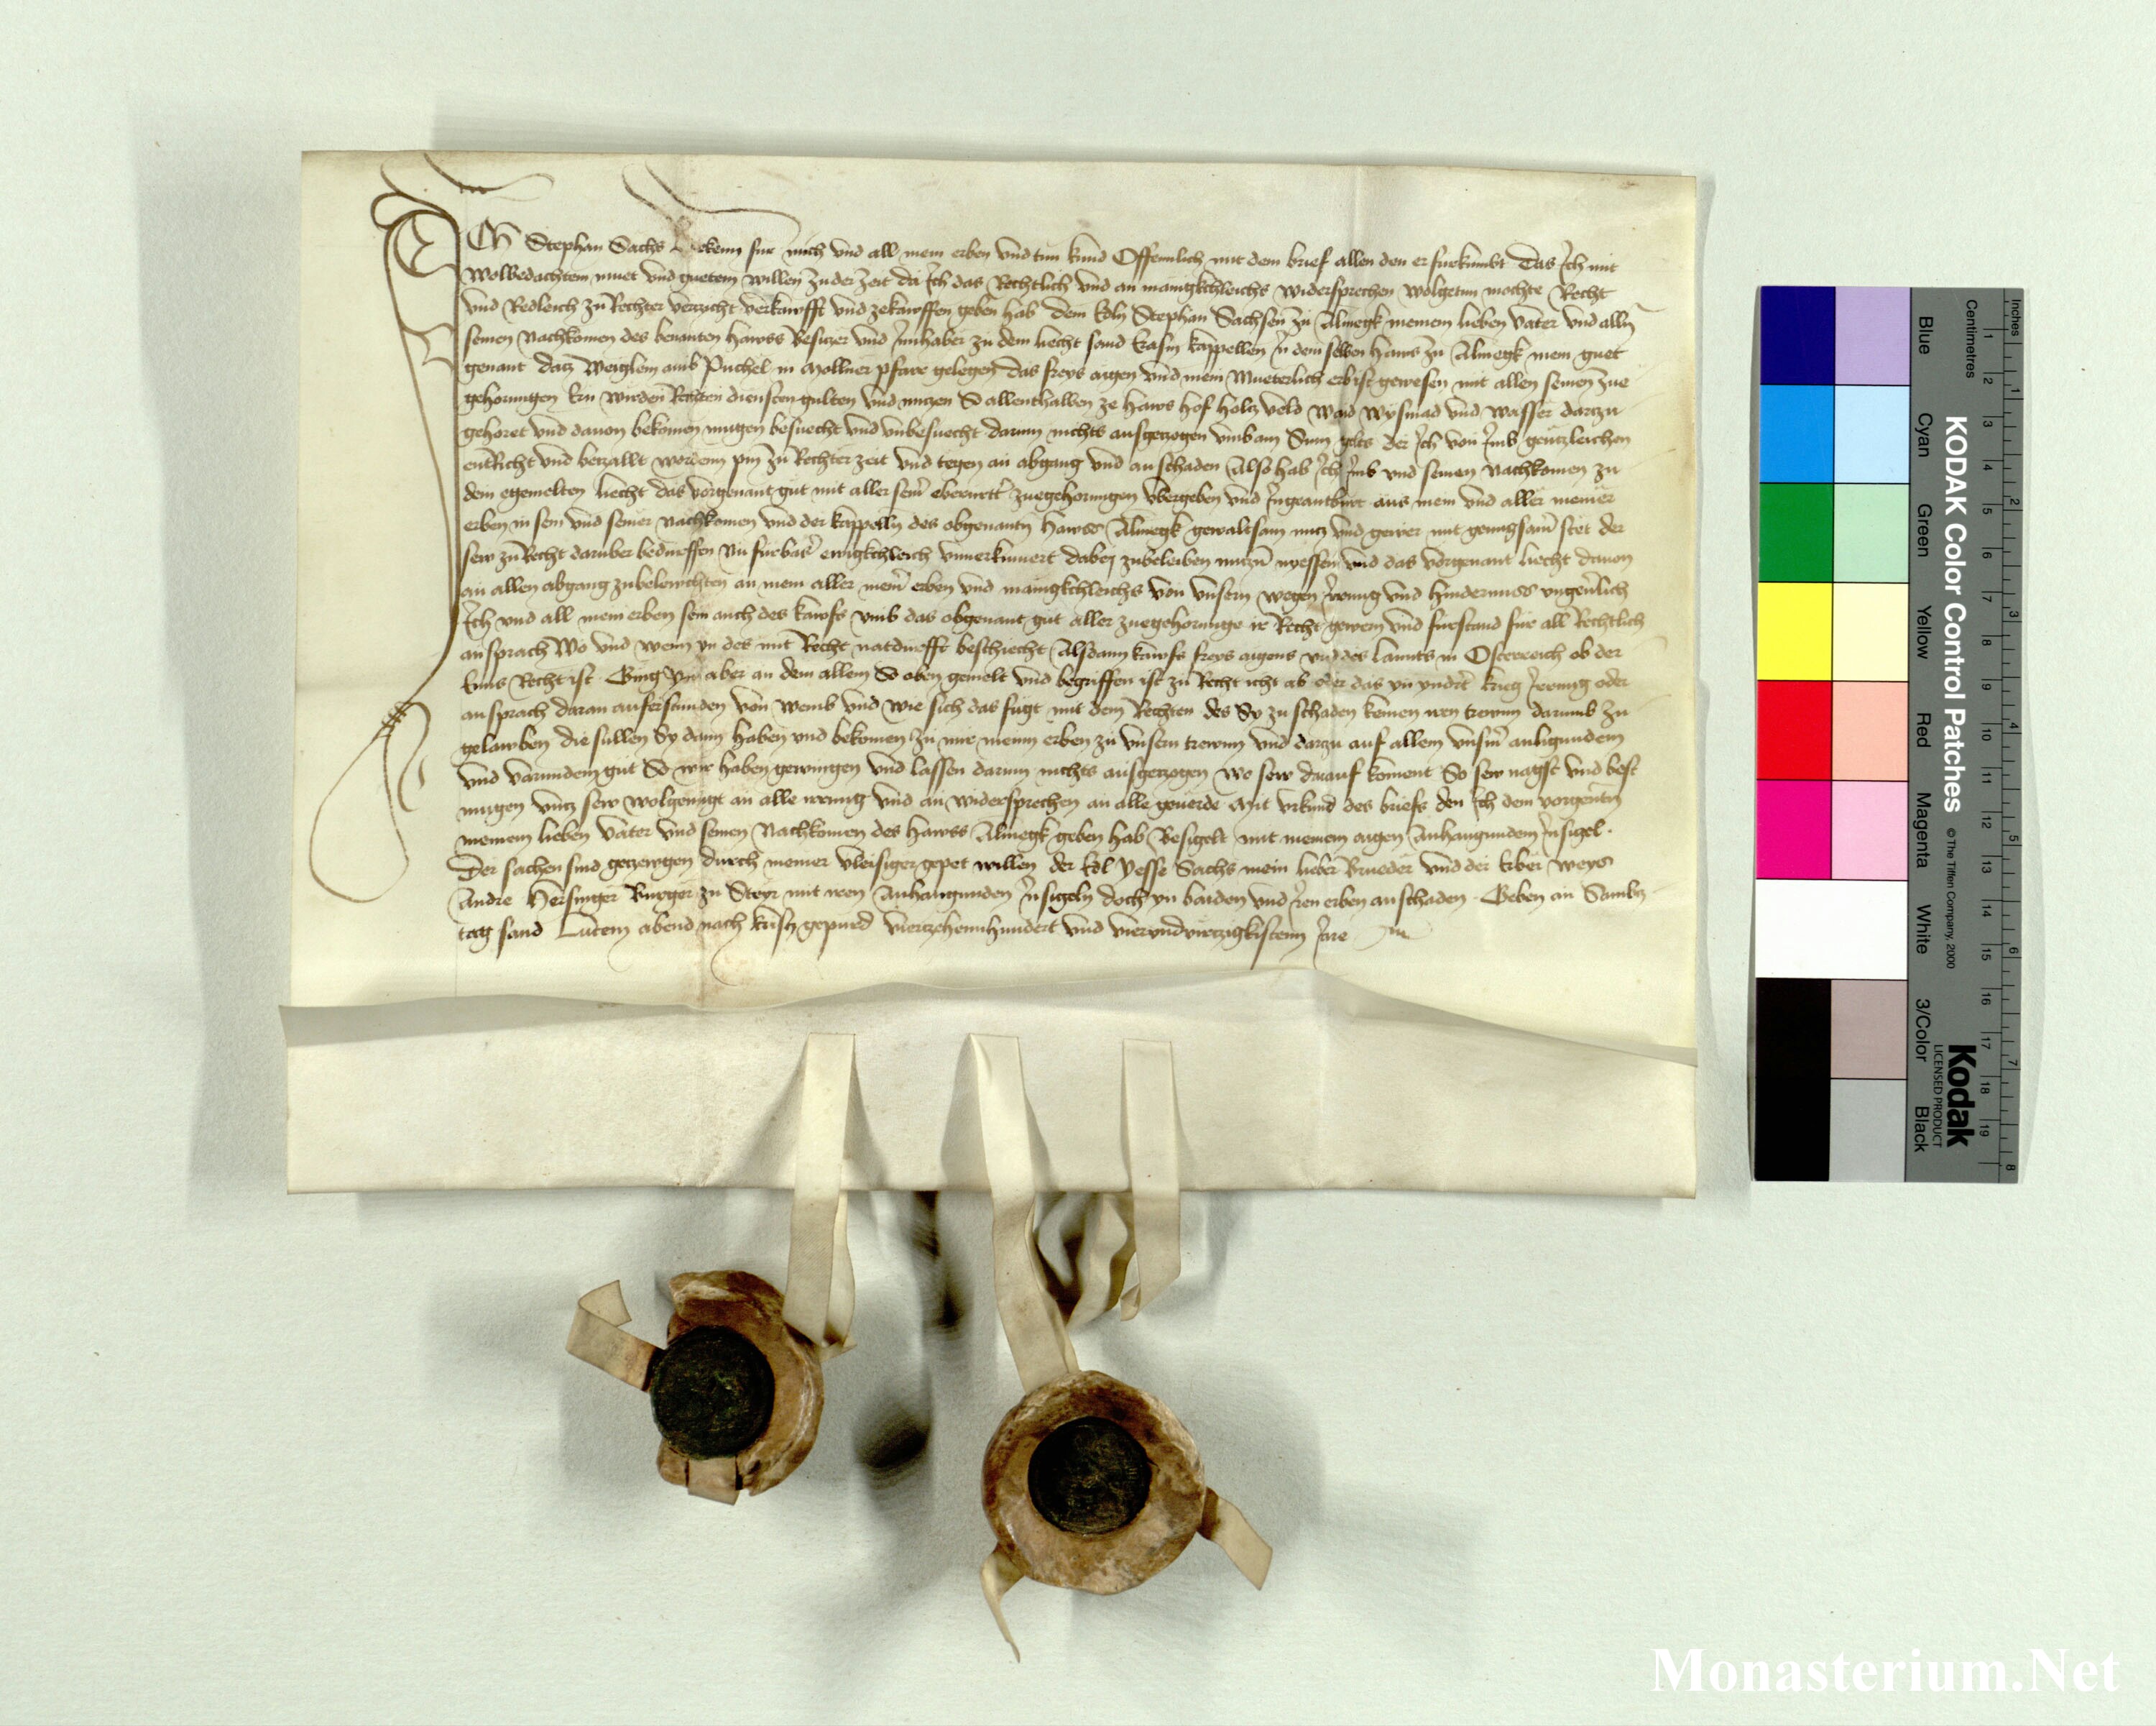 Ich Stephan Sachs Bekenn fur mich vnd all mein erben vnd tun kund Offennlich mit dem brief allen den er furkumbt Das Ich mit
Wolbedachtem muet vnd guetem willen zu der zeit da Ich das Rechtlich vnd an manigkchleichs widersprechen wolgetun mochte Recht
vnd Redleich zu Rechter verzicht verkawfft vnd zekawffen geben hab dem Edln Stephan Sachsen zu Almegk meinem lieben Vater vnd alln
seinen Nachkomen des benanten hawss Besiczer vnd Innhaber zu dem liecht sand Erasm kappellen in dem selben haws zu Almegk mein guet
genant dacz Weiglein amb Puchel in Mollner pfarr gelegen das freys aigen vnd mein Mueterlich erb ist gewesen mit allen seinen zue
gehorungen Ern wirden Rechten diensten gulten vnd nuczen So allenthalben ze haws hof holcz veld Waid Wysmad vnd Wasser darczu
gehoret vnd dauon bekomen mugen besuecht vnd vnbesuecht darinn nichts ausgeczogen vmb ain Sum gelts der Ich von Imb genczleichen
entRicht vnd beczallt worden pin zu Rechter zeit vnd tegen an abgang vnd an schaden Also hab Ich Imb vnd seinen Nachkomen zu
dem egemelten liecht das vorgenant gut mit aller seiner zuegehorungen vbergeben vnd Ingeantburt aus mein vnd aller meiner
erben in sein vnd seiner Nachkomen vnd der kappelln des obgenantn hawss Almegk gewaltsam nucz vnd gewer mit genugsam stet der
sew zu Recht daruber bedurffen Nu furbas ewigkchleich vnuerkumert dabej zubeleiben nuczn nyessen vnd das vorgenant liecht dauon
an allen abgang zubelewchten an mein aller meiner erben vnd manigkchleichs von vnsern wegen Irrung vnd hindernuss vngeuerlich
Ich vnd all mein erben sein auch des kawfs vmb das obgenant gut aller zuegehorunge ir Recht gewern vnd furstand fur all Rechtlich
ansprach Wo vnd wenn yn des mit Recht notdurfft beschiecht Alsdann kawfs freys aigens vnd des lannts in Osterreich ob der
Enns Recht ist Gieng yn aber an dem allem So oben gemelt vnd begriffen ist zu Recht icht ab oder das yn yndert krieg Irrung oder
ansprach daran auferstunden von wemb vnd wie sich das fugt mit dem Rechten des Sy zu schaden kemen iren trewn darumb zu
gelawben die sullen Sy dann haben vnd bekomen zu mir meinn erben zu vnsern trewnn vnd darzu auf allem vnserm anligundem
vnd varundem gut So wir haben gewingen vnd lassen darinn nichts ausgeczogen wo sew darauf koment So sew nagst vnd best
mugen vncz sew wolgenugt an alle irrung vnd an widersprechen an alle geuerde Mit vrkund des briefs den Ich dem vorgenantn
meinem lieben Vater vnd seinen Nachkomen des hawss Almegk geben hab Besigelt mit meinem aigen Anhangundem Insigel
Der sachen sind geczewgen durch meiner vleisiger gepet willen der Edl Jesse Sachs mein lieber Brueder vnd der Erber Weys
Andre Hersinger Burger zu Steyr mit iren Anhangunden Insigeln doch yn baiden vnd iren erben an schaden Geben an Sambcz
tag sand Lucein abend nach Kristi gepurd vierczehennhundert vnd vierundvirczigkistenn Jare
KODAK Color Control Patches © The Tiffen Company, 2000
Kodak
LICENSED PRODUCT
Inches 1 2 3 4 5 6 7 8
Centimetres 1 2 3 4 5 6 7 8 9 10 11 12 13 14 15 16 17 18 19
Blue Cyan Green Yellow Red Magenta White 3/Color Black
Monasterium.Net